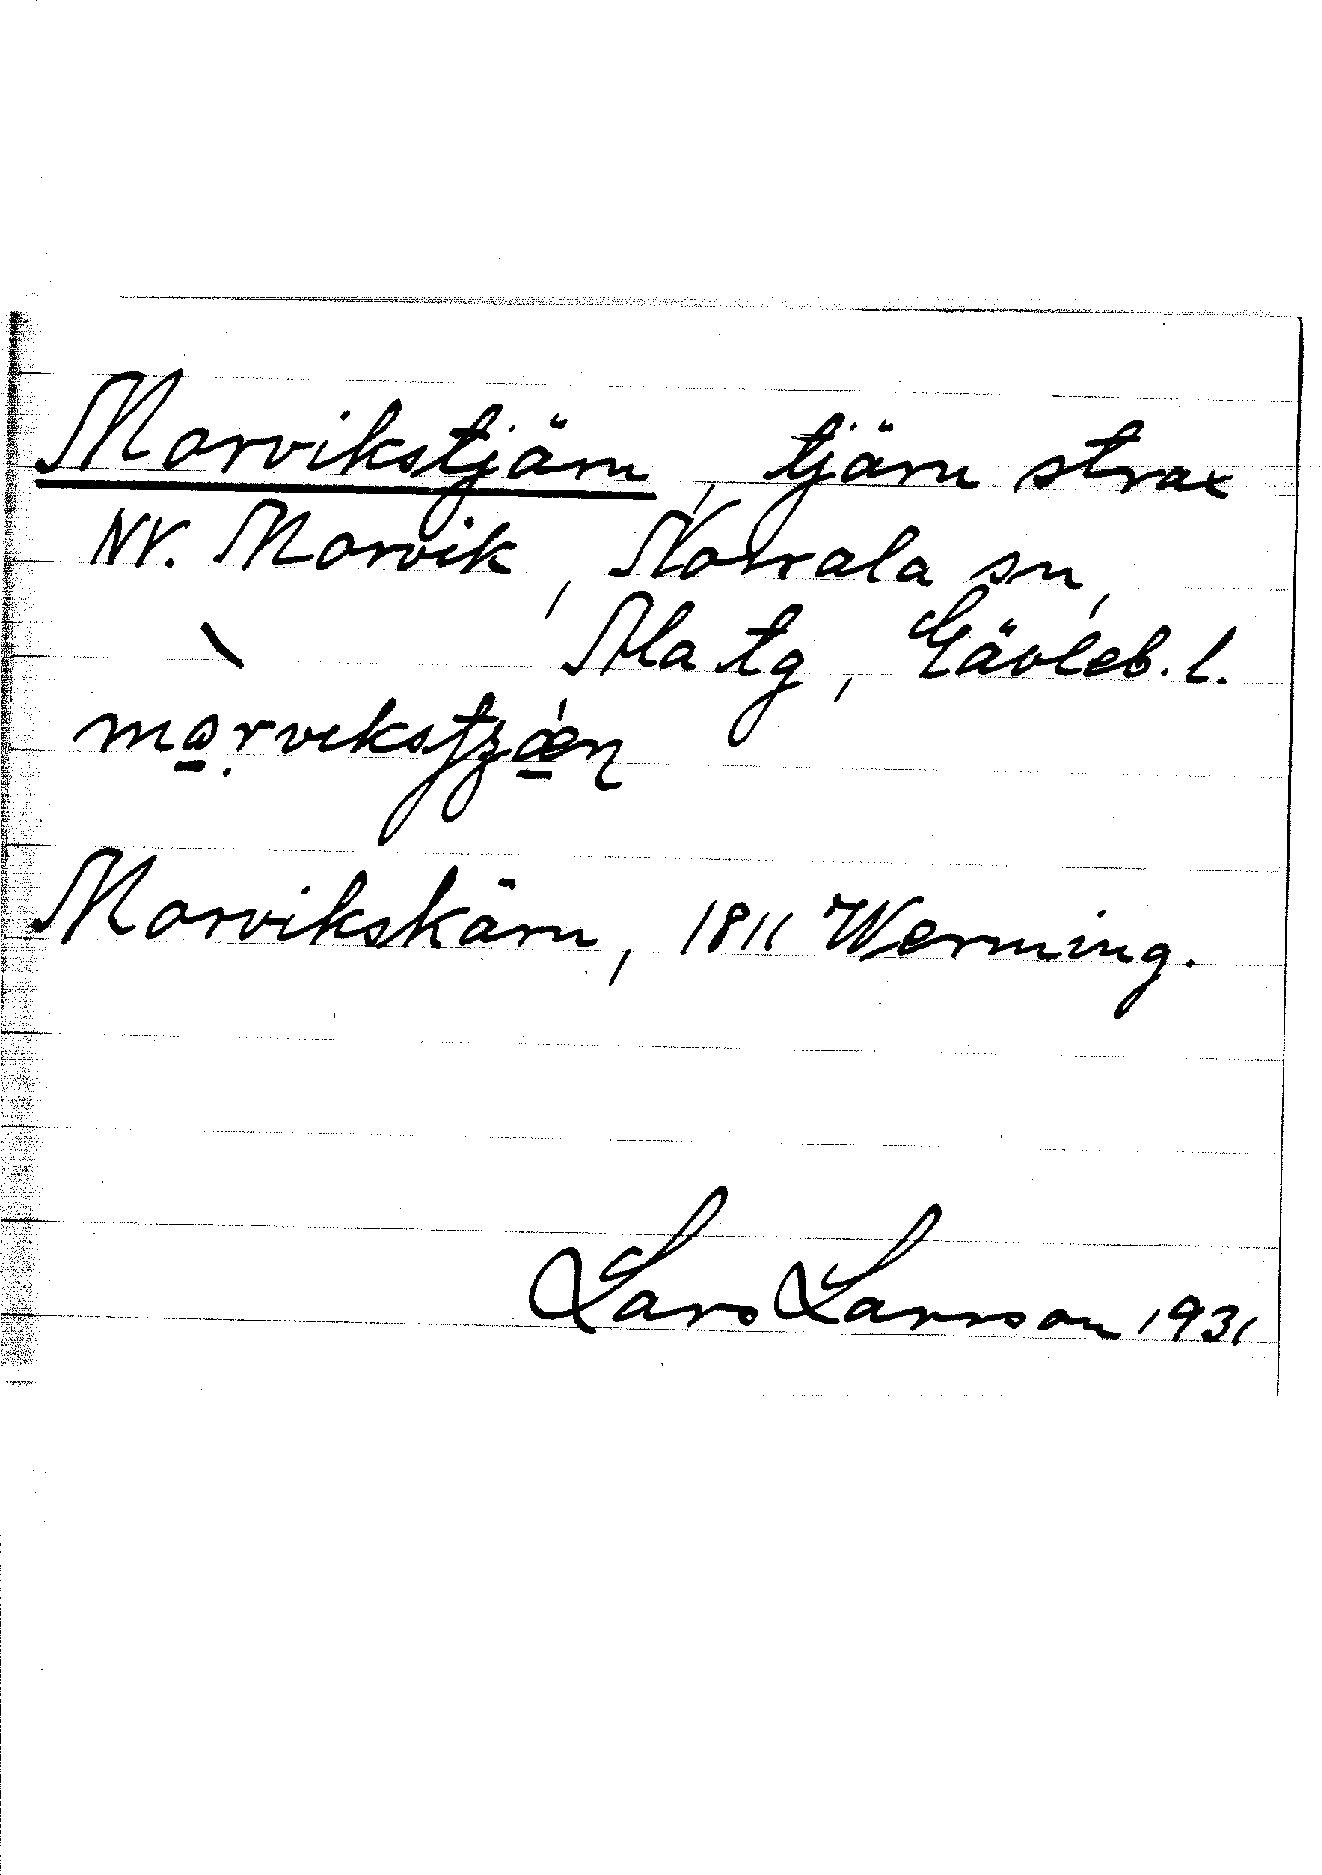 Morvikstjärn, tjärn strax
NV. Morvik, Norrala sn,
Ala tg, Gävleb. l.
Morvikskärn, 1811 Werming.
Lars Larsson 1931